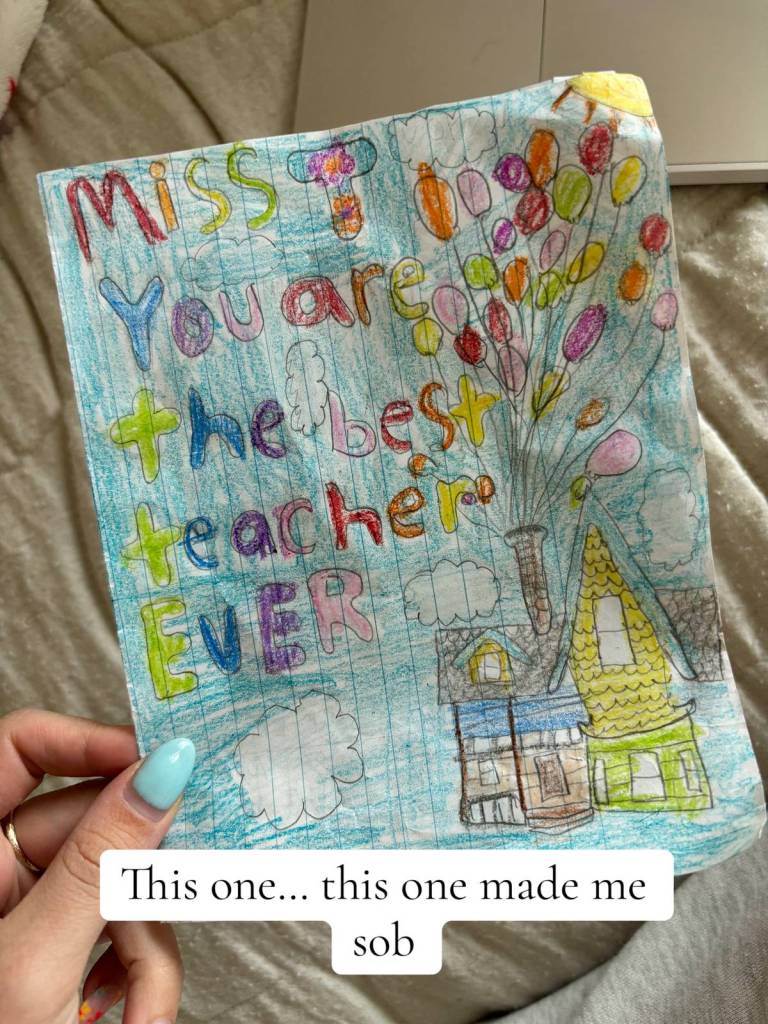 Miss T
You are
the best
teacher
EVER
This one... this one made me
sob